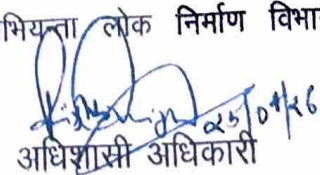 भियन्ता लोक निर्माण विभा
25/04/26
अधिशासी अधिकारी